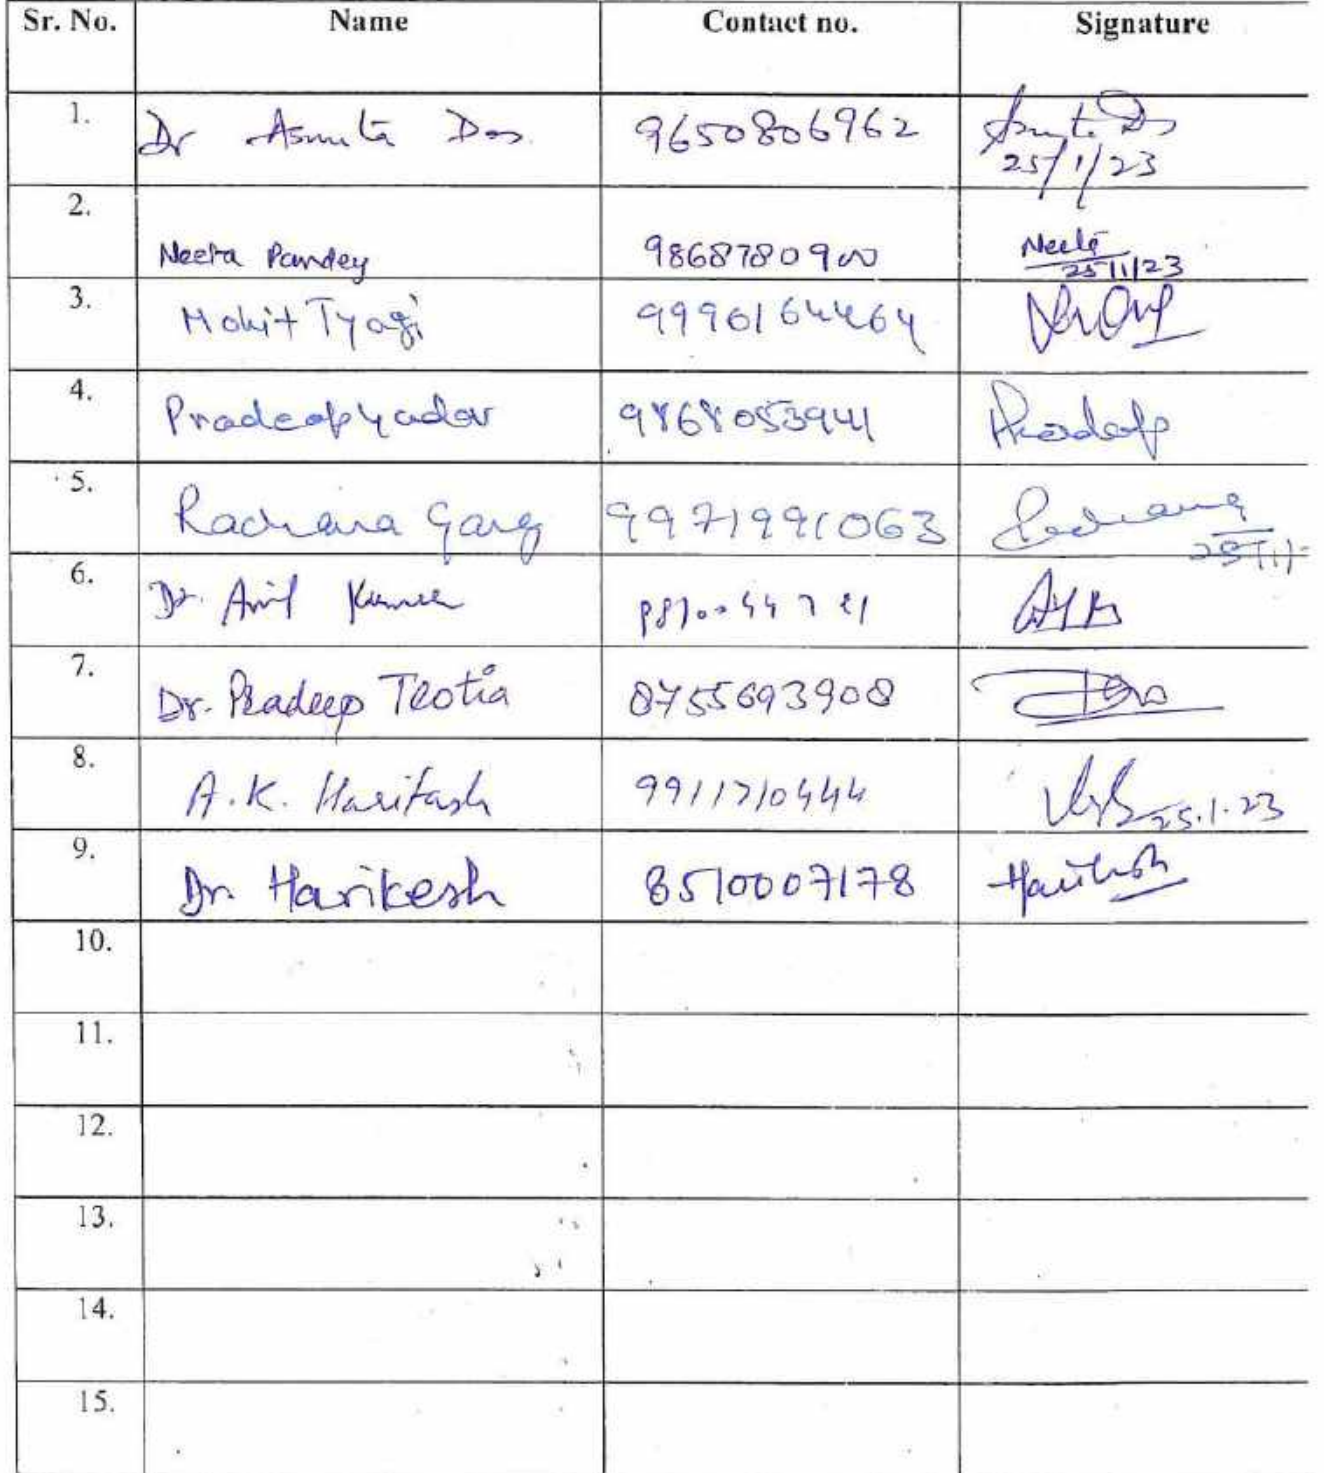 Sr. No. Name Contact no. Signature
1. Dr Asmita Das 9650806962
25/1/23
2. Neeta Pandey 9868780900 Neeta
25/1/23
3. Mohit Tyagi 9996164464
4. Pradeep Yadav 9868053941 Pradeep
5. Rachana Garg 9971991063 Rachana
6. Dr. Anil Kumar
7. Dr. Pradeep Teotia 8755693908
8. A.K. Haritash 9911710444
25.1.23
9. Dr. Harikesh 8510007178 Harikesh
10.
11.
12.
13.
14.
15.